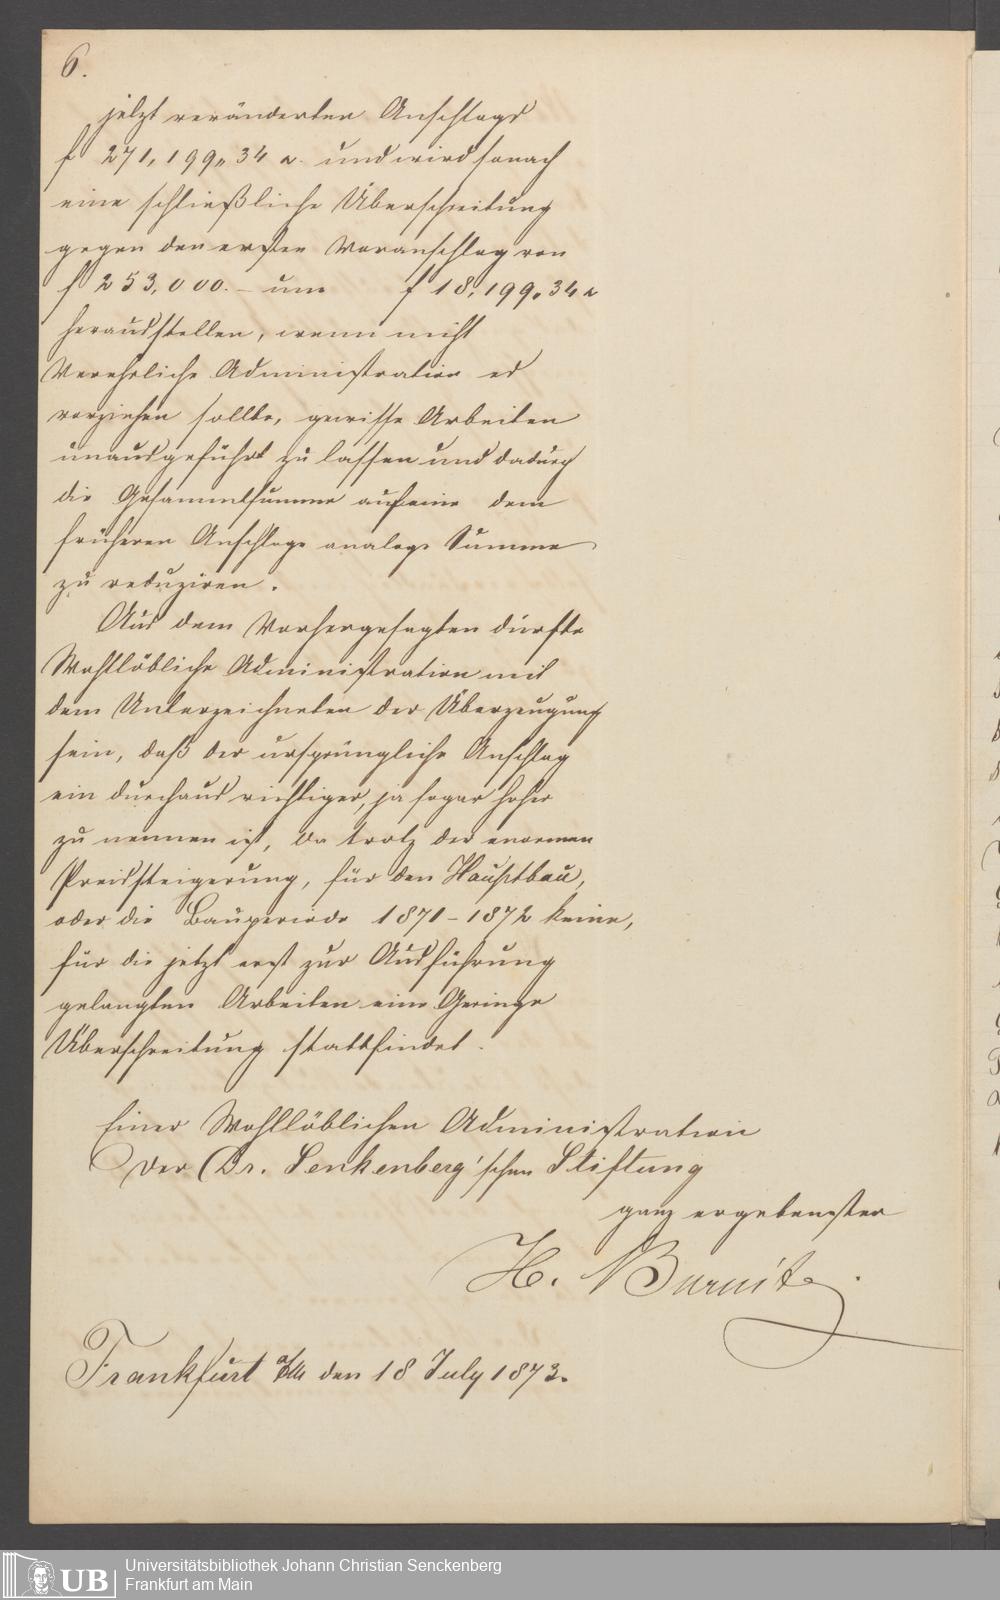 6.
jetzt veränderten Anschlags
f 271,199„ 34 x. und wird sonach
eine schließliche Überschreitung
gegen den ersten Voranschlag von
f 253,000.– um f 18,199„ 34 x
herausstellen, wenn nicht
Verehrliche Administration es
vorziehen sollte, gewisse Arbeiten
unausgeführt zu lassen und dadurch
die Gesammtsumme auf eine dem
früheren Anschlage analoge Summe
zu reduziren.
Aus dem Vorhergesagten dürfte
Wohllöbliche Administration mit
dem Unterzeichneten der Überzeugung
sein, daß der ursprüngliche Anschlag
ein durchaus richtiger, ja sogar hoher
zu nennen ist, da trotz der enormen
Preissteigerung, für den Hauptbau,
oder die Bauperiode 1871–1872 keine,
für die jetzt erst zur Ausführung
gelangten Arbeiten eine Geringe
Überschreitung stattfindet.
Einer Wohllöblichen Administration
der Dr. Senkenberg'schen Stiftung
ganz ergebenster
H. Burnitz.
Frankfurt a/M den 18 July 1873.
UB
Universitätsbibliothek Johann Christian Senckenberg
Frankfurt am Main